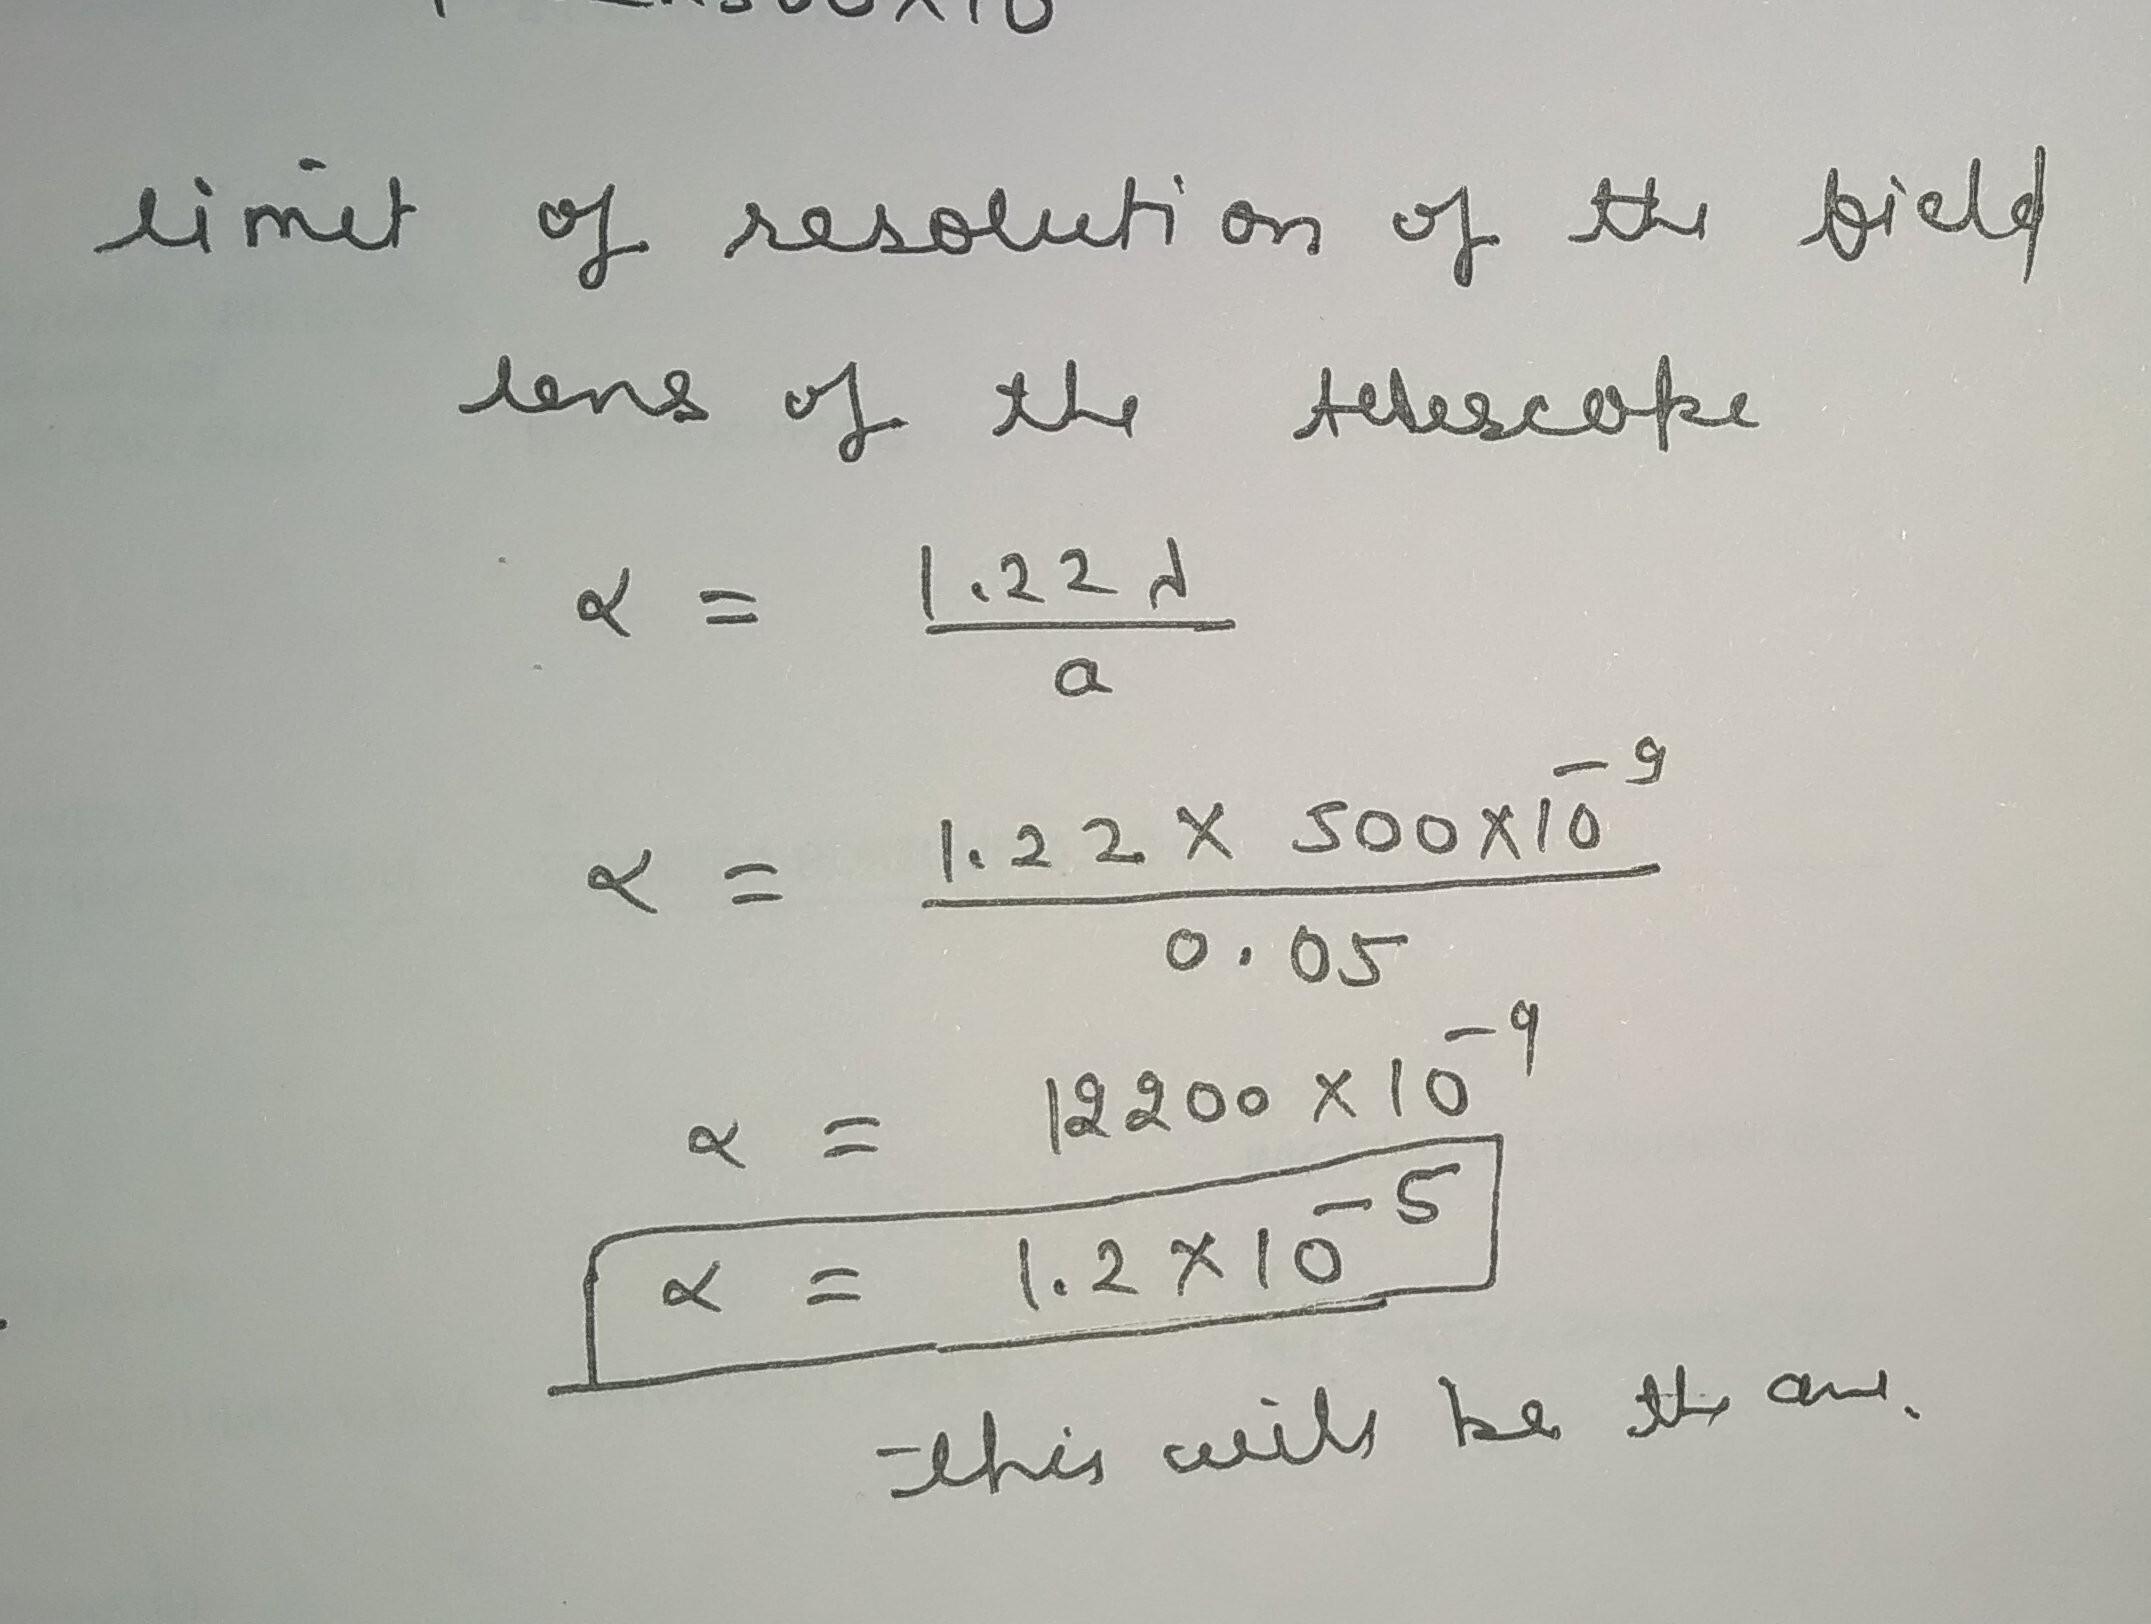 limit of resolution of the field
lens of the telescope
α = 1.22 λ / a
α = 1.22 × 500×10⁻⁹ / 0.05
α = 12200 × 10⁻⁹
α = 1.2 × 10⁻⁵
This will be the ans.